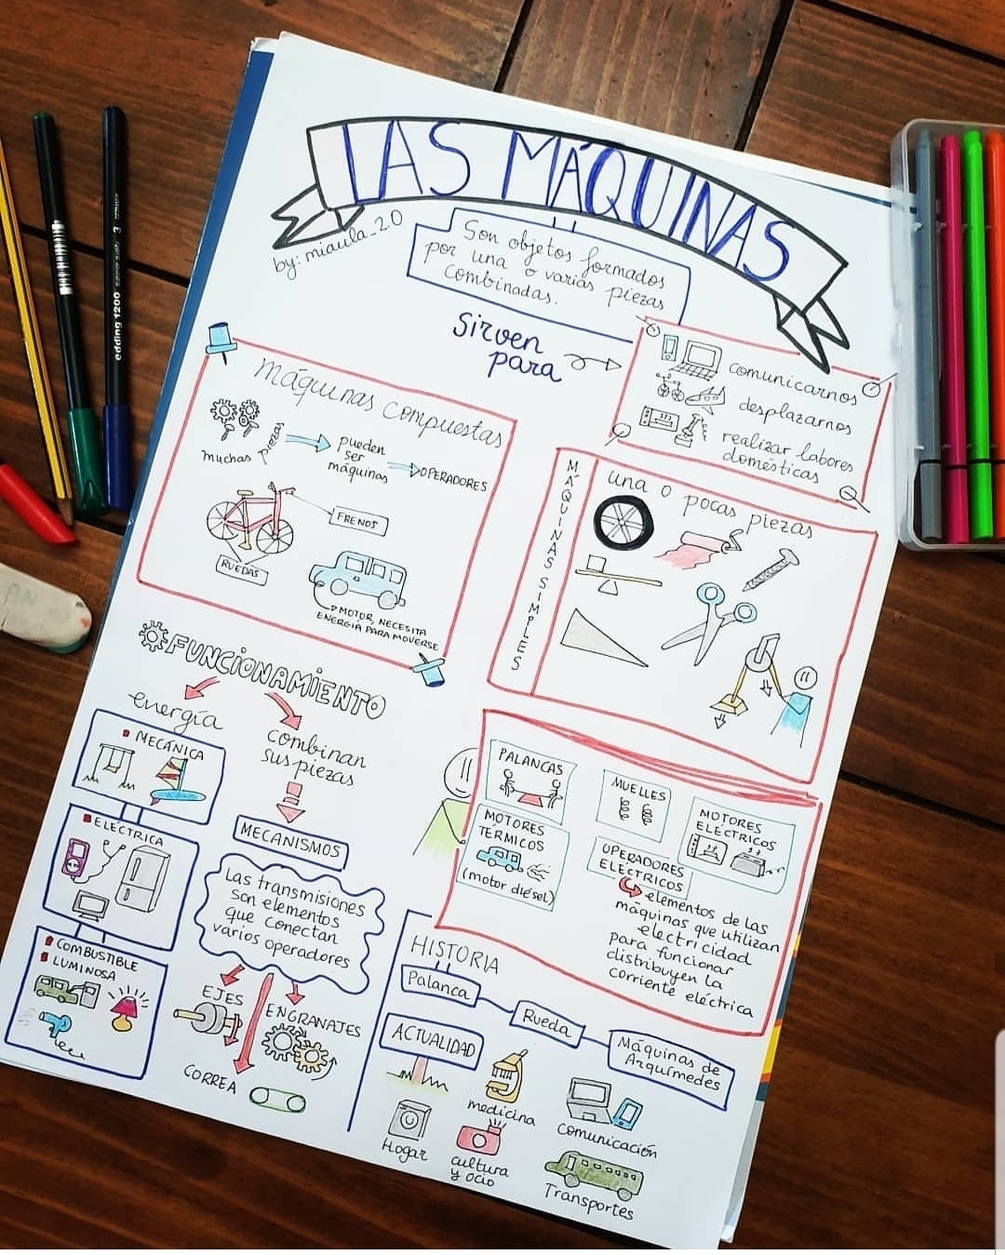 LAS MÁQUINAS
by: miaula_2.0
Son objetos formados
por una o varias piezas
combinadas.
Sirven
para
comunicarnos
desplazarnos
realizar labores
domésticas
máquinas compuestas
muchas piezas
pueden
ser
máquinas
OPERADORES
FRENOS
RUEDAS
MOTOR, NECESITA
ENERGÍA PARA MOVERSE
MÁQUINAS SIMPLES
una o pocas piezas
FUNCIONAMIENTO
energía
MECÁNICA
ELÉCTRICA
COMBUSTIBLE
LUMINOSA
combinan
sus piezas
MECANISMOS
Las transmisiones
son elementos
que conectan
varios operadores
EJES
ENGRANAJES
CORREA
PALANCAS
MUELLES
MOTORES
ELÉCTRICOS
MOTORES
TERMICOS
(motor diésel)
OPERADORES
ELÉCTRICOS
elementos de las
máquinas que utilizan
electricidad
para funcionar
distribuyen la
corriente eléctrica
HISTORIA
Palanca
Rueda
Máquinas de
Arquímedes
ACTUALIDAD
medicina
Comunicación
Hogar
cultura
y ocio
Transportes
edding 1200
3